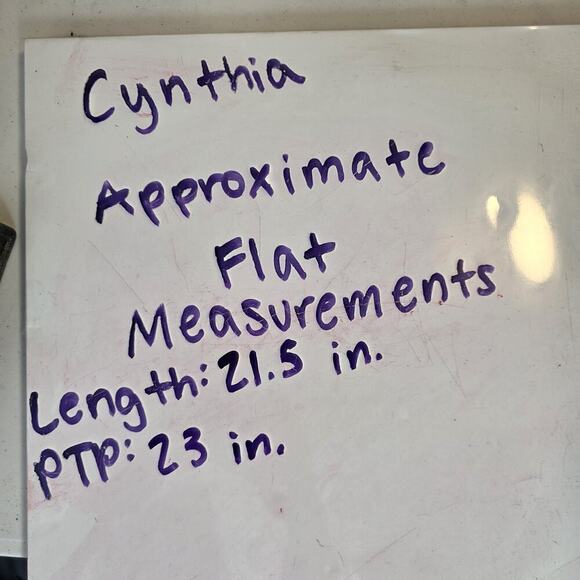 Cynthia
Approximate
Flat
Measurements
Length: 21.5 in.
PTP: 23 in.